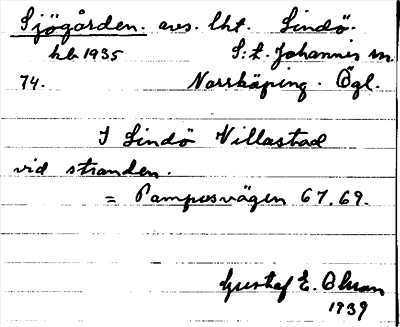 Sjögården. avs. lht. Lindö.
hb 1935 S:t Johannis sn.
74. Norrköping. Ögl.
I Lindö Villastad
vid stranden.
= Pampusvägen 67.69.
Gustaf E. Ohman
1939